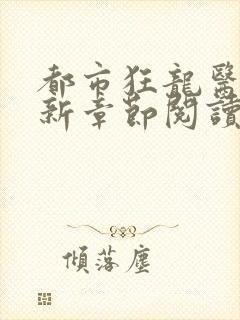 都市狂龍醫
新章節閱讀
傾落塵